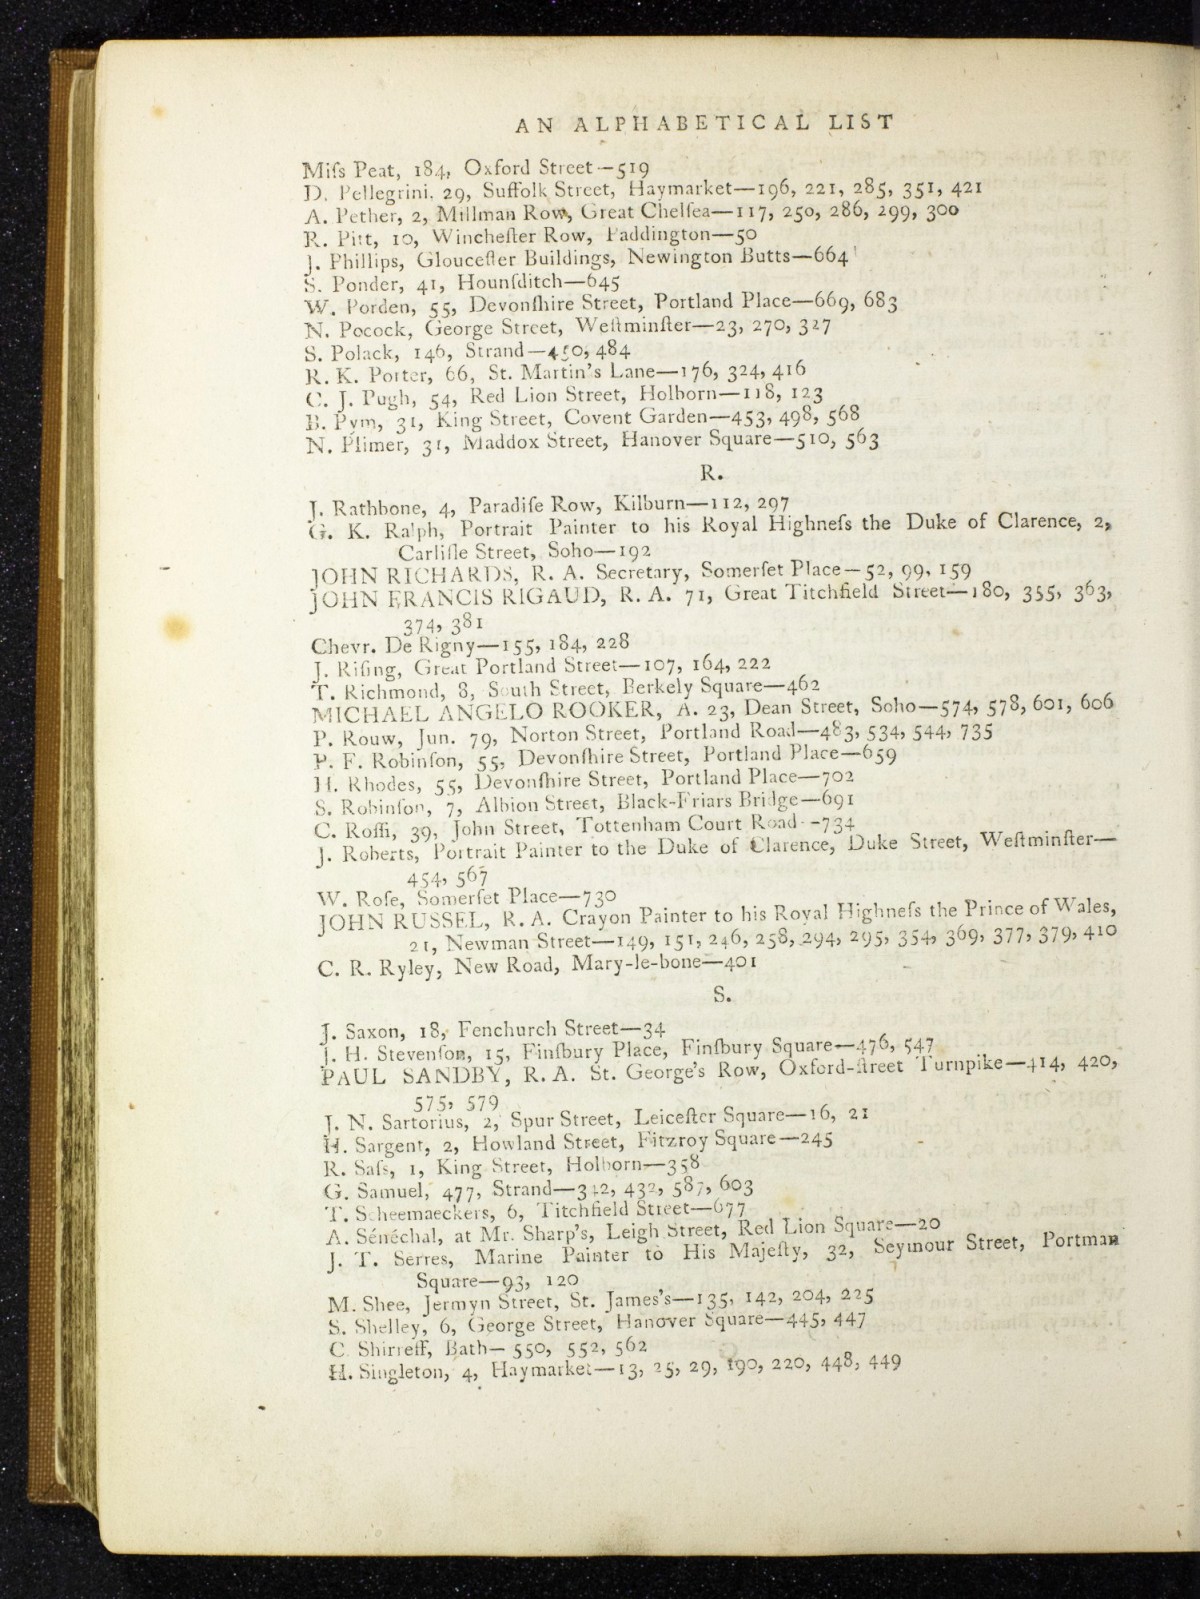 AN ALPHABETICAL LIST
Miſs Peat, 184, Oxford Street—519
D. Pellegrini, 29, Suffolk Street, Haymarket—196, 221, 285, 351, 421
A. Pether, 2, Millman Row, Great Chelſea—117, 250, 286, 299, 300
R. Pitt, 10, Wincheſter Row, Paddington—50
J. Phillips, Glouceſter Buildings, Newington Butts—664
S. Ponder, 41, Hounſditch—645
W. Porden, 55, Devonſhire Street, Portland Place—669, 683
N. Pocock, George Street, Weſtminſter—23, 270, 327
S. Polack, 146, Strand—450, 484
R. K. Porter, 66, St. Martin's Lane—176, 324, 416
C. J. Pugh, 54, Red Lion Street, Holborn—118, 123
B. Pym, 31, King Street, Covent Garden—453, 498, 568
N. Plimer, 31, Maddox Street, Hanover Square—510, 563
R.
J. Rathbone, 4, Paradiſe Row, Kilburn—112, 297
G. K. Ralph, Portrait Painter to his Royal Highneſs the Duke of Clarence, 2,
Carliſle Street, Soho—192
JOHN RICHARDS, R. A. Secretary, Somerſet Place—52, 99, 159
JOHN FRANCIS RIGAUD, R. A. 71, Great Titchfield Street—180, 355, 363,
374, 381
Chevr. De Rigny—155, 184, 228
J. Riſing, Great Portland Street—107, 164, 222
T. Richmond, 8, South Street, Berkely Square—462
MICHAEL ANGELO ROOKER, A. 23, Dean Street, Soho—574, 578, 601, 606
P. Rouw, Jun. 79, Norton Street, Portland Road—483, 534, 544, 735
P. F. Robinſon, 55, Devonſhire Street, Portland Place—659
H. Rhodes, 55, Devonſhire Street, Portland Place—702
S. Robinſon, 7, Albion Street, Black-Friars Bridge—691
C. Roſſi, 39, John Street, Tottenham Court Road—734
J. Roberts, Portrait Painter to the Duke of Clarence, Duke Street, Weſtminſter—
454, 567
W. Roſe, Somerſet Place—730
JOHN RUSSEL, R. A. Crayon Painter to his Royal Highneſs the Prince of Wales,
21, Newman Street—149, 151, 246, 258, 294, 295, 354, 369, 377, 379, 410
C. R. Ryley, New Road, Mary-le-bone—401
S.
J. Saxon, 18, Fenchurch Street—34
J. H. Stevenſon, 15, Finſbury Place, Finſbury Square—476, 547
PAUL SANDBY, R. A. St. George's Row, Oxford-ſtreet Turnpike—414, 420,
575, 579
J. N. Sartorius, 2, Spur Street, Leiceſter Square—16, 21
H. Sargent, 2, Howland Street, Fitzroy Square—245
R. Saſs, 1, King Street, Holborn—358
G. Samuel, 477, Strand—342, 432, 587, 603
T. Scheemaeckers, 6, Titchfield Street—677
A. Sénéchal, at Mr. Sharp's, Leigh Street, Red Lion Square—20
J. T. Serres, Marine Painter to His Majeſty, 32, Seymour Street, Portman
Square—93, 120
M. Shee, Jermyn Street, St. James's—135, 142, 204, 225
S. Shelley, 6, George Street, Hanover Square—445, 447
C. Shirreff, Bath—550, 552, 562
H. Singleton, 4, Haymarket—13, 25, 29, 190, 220, 448, 449